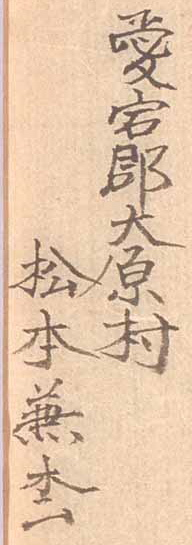 愛宕郡大原村
松本兼吉